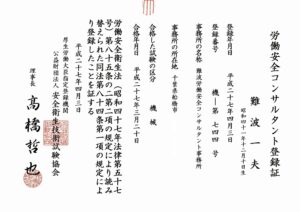 労働安全コンサルタント登録証
難波一夫
昭和四十一年十二月十日生
登録年月日　平成二十七年四月三日
登録番号　機―第七四四号
事務所の名称　難波労働安全コンサルタント事務所
事務所の所在地　千葉県船橋市
合格した試験の区分　機械
合格年月日　平成二十七年三月二十日
労働安全衛生法（昭和四十七年法律第五十七
号）第八十五条の二第二項の規定により読み
替えられた同法第八十四条第一項の規定によ
り登録したことを証する
平成二十七年四月三日
厚生労働大臣指定登録機関
公益財団法人安全衛生技術試験協会
理事長　高橋哲也